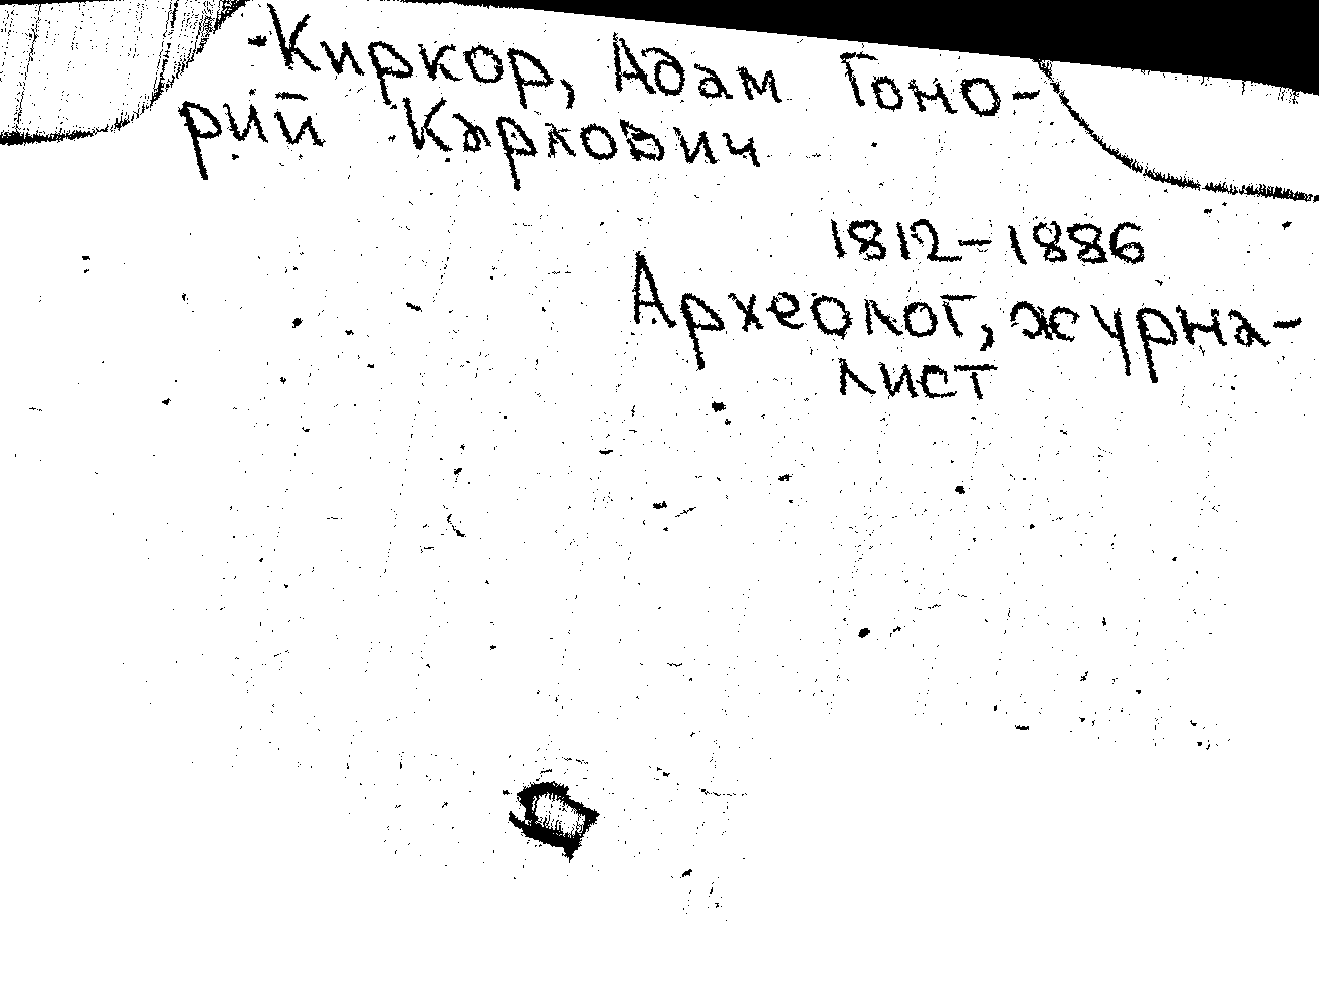 Киркор, Адам Гоно-
рий Карлович
1812-1886
Археолог, журна-
лист